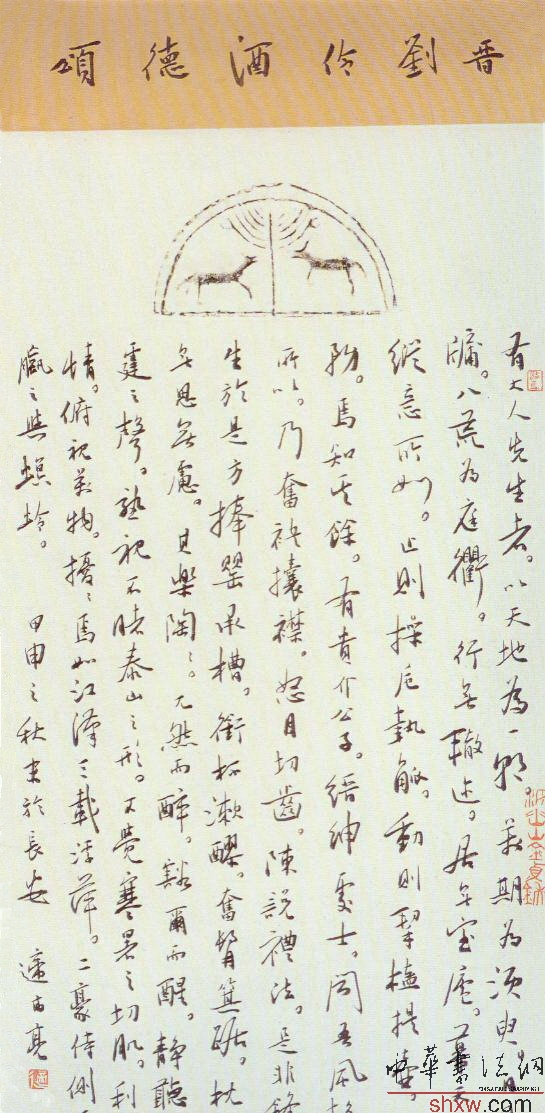 晋劉伶酒德頌
有大人先生者。以天地為一朝。萬期為須臾
牖。八荒為庭衢。行無轍迹。居無室廬。幕天
縱意所如。止則操卮執觚。動則挈榼提壺。
務。焉知其餘。有貴介公子。縉紳處士。聞吾風
所以。乃奮袂攘襟。怒目切齒。陳說禮法。是非鋒
生於是方捧罌承槽。銜杯漱醪。奮髯箕踞。枕
無思無慮。其樂陶々。兀然而醉。豁爾而醒。靜聽
霆之聲。熟視不睹泰山之形。不覺寒暑之切肌。利
情。俯視萬物。擾々焉如江漢之載浮萍。二豪侍側
臝之與螟蛉。甲申之秋書於長安
中華書法網
shxw.com